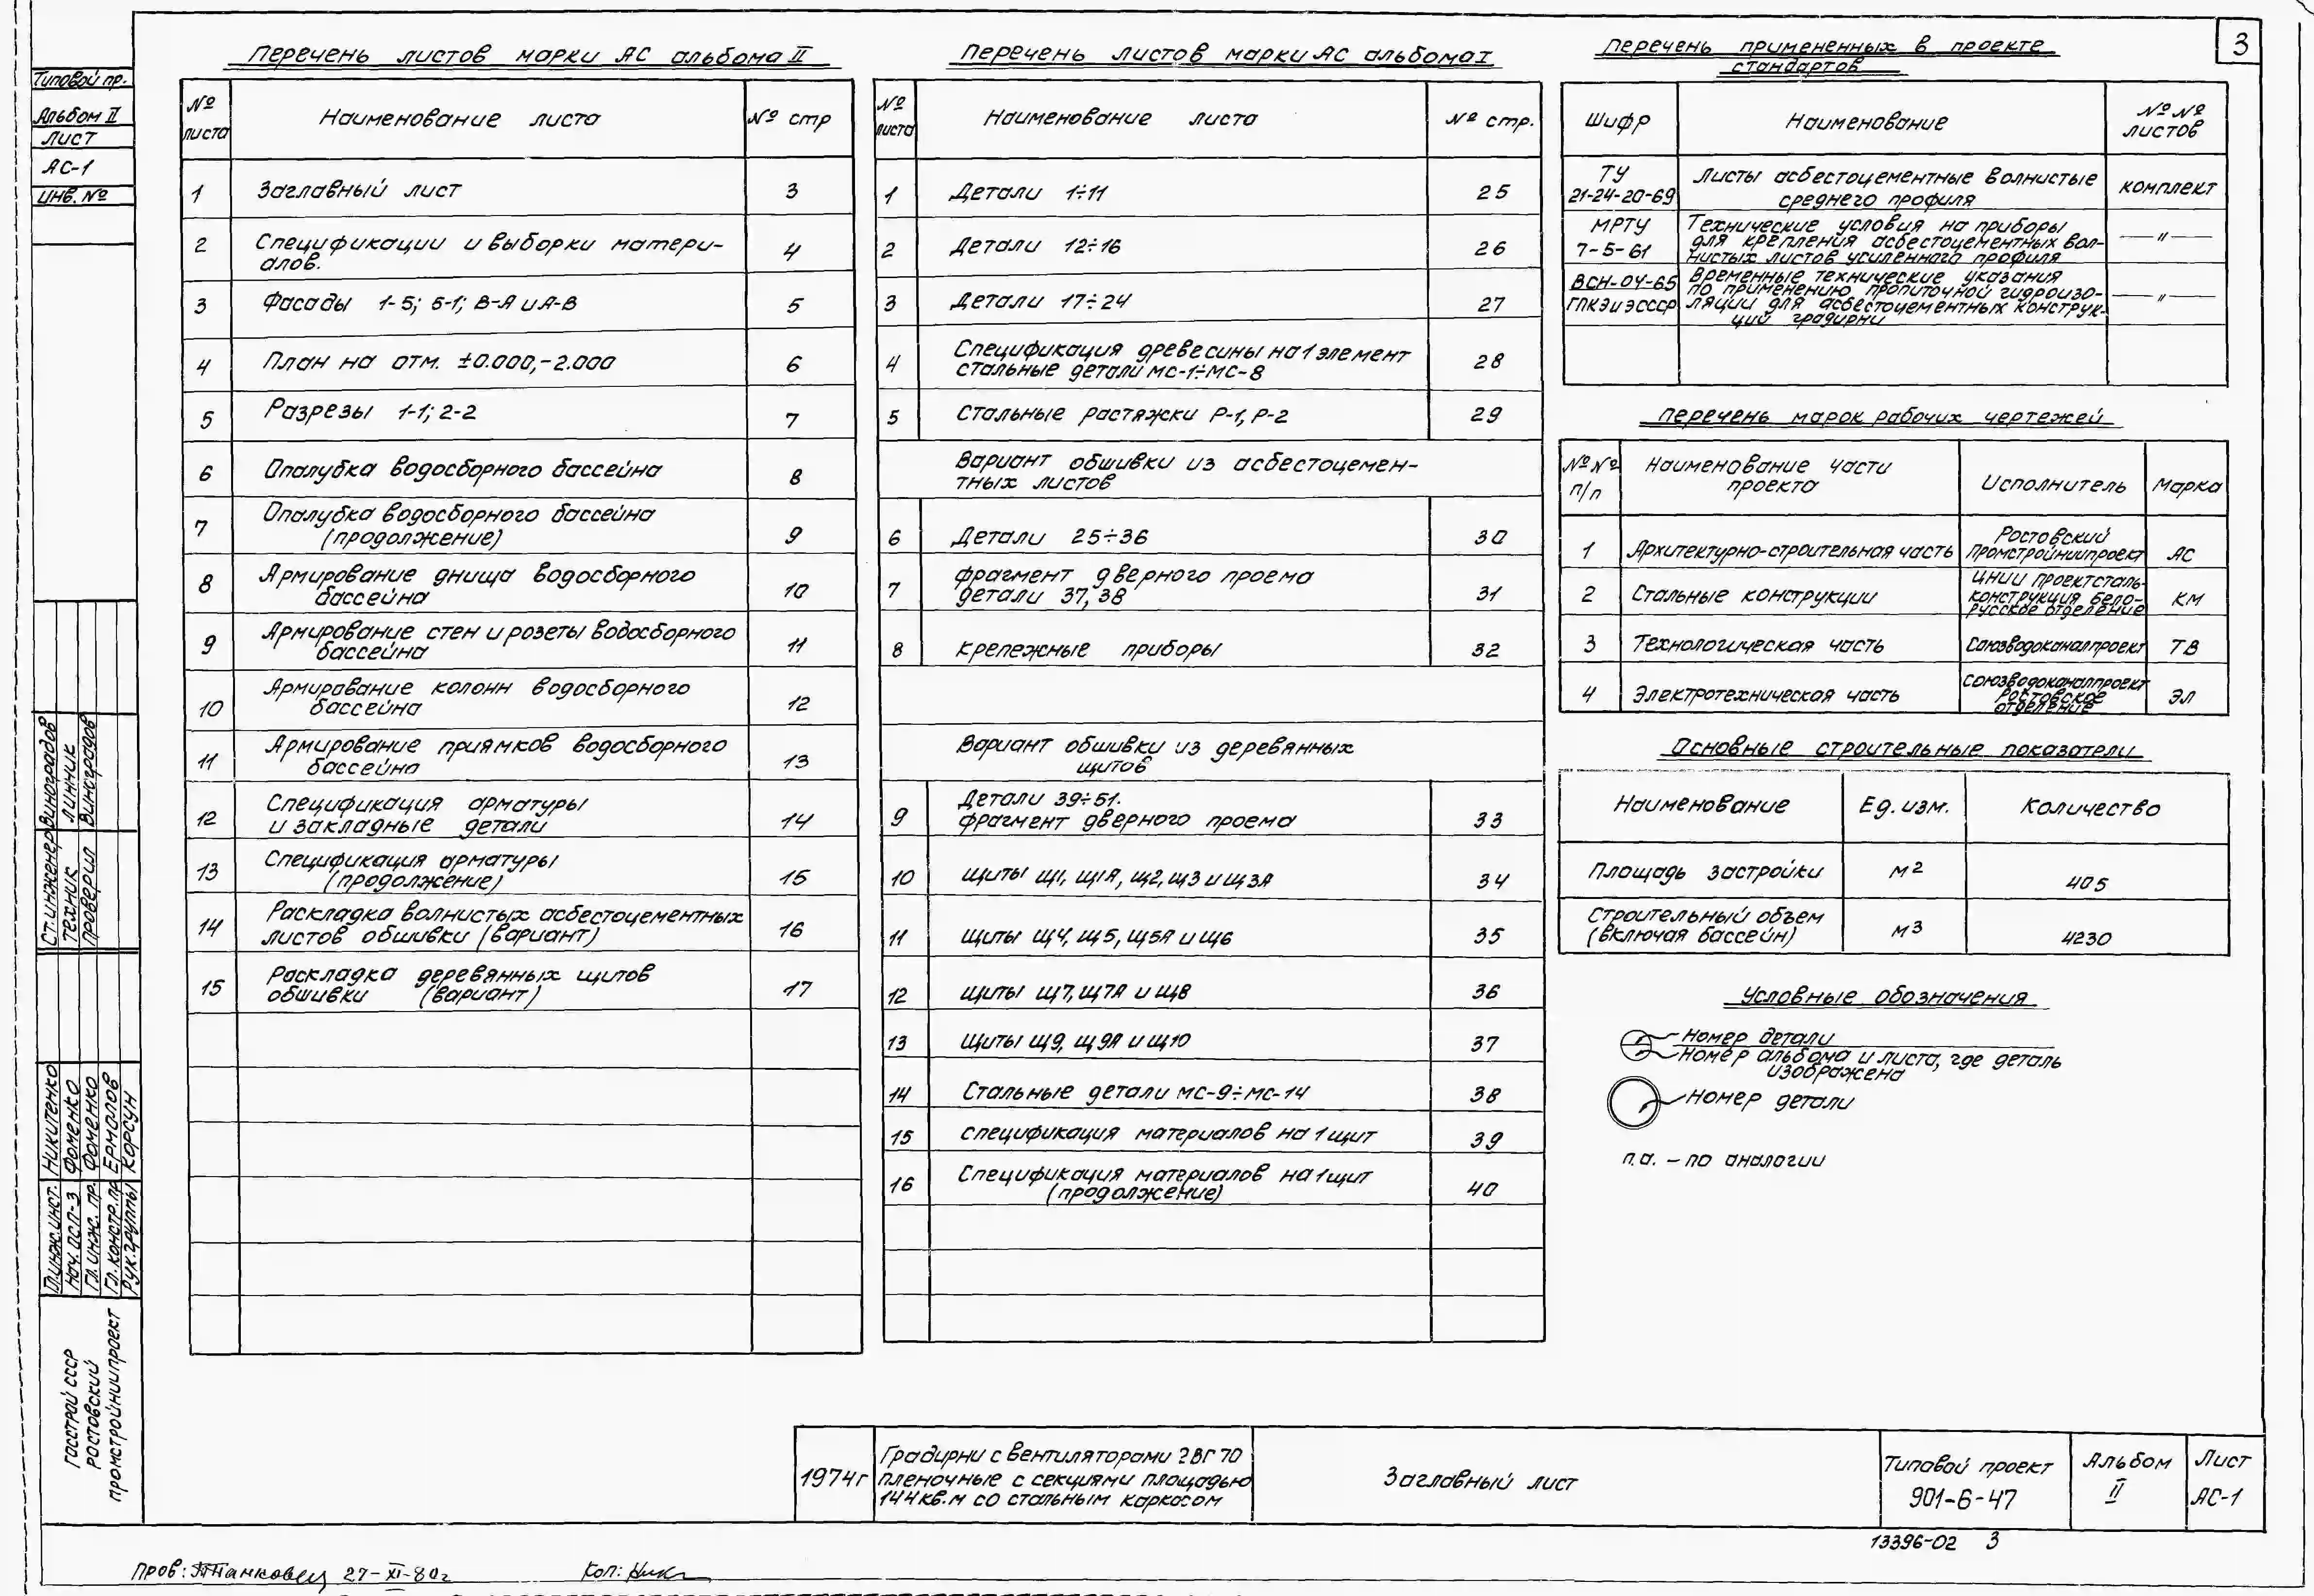 3
Типовой пр.
Альбом II
Лист
АС-1
Инв. №
Перечень листов марки АС альбома II
№ листа
Наименование листа
№ стр
1 Заглавный лист 3
2 Спецификации и выборки матери-
алов. 4
3 Фасады 1-5; 5-1; В-А и А-В 5
4 План на отм. ±0.000,-2.000 6
5 Разрезы 1-1; 2-2 7
6 Опалубка водосборного бассейна 8
7 Опалубка водосборного бассейна
(продолжение) 9
8 Армирование днища водосборного
бассейна 10
9 Армирование стен и розеты водосборного
бассейна 11
10 Армирование колонн водосборного
бассейна 12
11 Армирование приямков водосборного
бассейна 13
12 Спецификация арматуры
и закладные детали 14
13 Спецификация арматуры
(продолжение) 15
14 Раскладка волнистых асбестоцементных
листов обшивки (вариант) 16
15 Раскладка деревянных щитов
обшивки (вариант) 17
Перечень листов марки АС альбома I
№ листа
Наименование листа
№ стр.
1 Детали 1÷11 25
2 Детали 12÷16 26
3 Детали 17÷24 27
4 Спецификация древесины на 1 элемент
стальные детали МС-1÷МС-8 28
5 Стальные растяжки Р-1, Р-2 29
Вариант обшивки из асбестоцемен-
тных листов
6 Детали 25÷36 30
7 Фрагмент дверного проема
детали 37, 38 31
8 Крепежные приборы 32
Вариант обшивки из деревянных
щитов
9 Детали 39÷51.
Фрагмент дверного проема 33
10 Щиты Щ1, Щ1А, Щ2, Щ3 и Щ3А 34
11 Щиты Щ4, Щ5, Щ5А и Щ6 35
12 Щиты Щ7, Щ7А и Щ8 36
13 Щиты Щ9, Щ9А и Щ10 37
14 Стальные детали МС-9÷МС-14 38
15 Спецификация материалов на 1 щит 39
16 Спецификация материалов на 1 щит
(продолжение) 40
Перечень примененных в проекте
стандартов
Шифр
Наименование
№ № листов
ТУ
21-24-20-69
Листы асбестоцементные волнистые
среднего профиля
комплект
МРТУ
7-5-61
Технические условия на приборы
для крепления асбестоцементных вол-
нистых листов усиленного профиля
—〃—
ВСН-04-65
ГПКЭиЭСССР
Временные технические указания
по применению пропиточной гидроизо-
ляции для асбестоцементных конструк-
ций градирни
—〃—
Перечень марок рабочих чертежей
№ № п/п
Наименование части
проекта
Исполнитель
Марка
1 Архитектурно-строительная часть
Ростовский
Промстройниипроект
АС
2 Стальные конструкции
ЦНИИ проектсталь-
конструкция Бело-
русское отделение
КМ
3 Технологическая часть Союзводоканалпроект ТВ
4 Электротехническая часть
Союзводоканалпроект
Ростовское
отделение
ЭЛ
Основные строительные показатели
Наименование Ед. изм. Количество
Площадь застройки м2 405
Строительный объем
(включая бассейн) м3 4230
Условные обозначения
Номер детали
Номер альбома и листа, где деталь
изображена
Номер детали
п.а. – по аналогии
Ст. инженер Виноградов
Техник Линник
Проверил Виноградов
Гл. инж. инст. Никитенко
Нач. ОСП-3 Фоменко
Гл. инж. пр. Фоменко
Гл. констр. пр Ермолов
Рук. группы Корсун
Госстрой СССР
Ростовский
Промстройниипроект
1974г
Градирни с вентиляторами 2ВГ 70
пленочные с секциями площадью
144кв.м со стальным каркасом
Заглавный лист
Типовой проект
901-6-47
Альбом
II
Лист
АС-1
13396-02 3
Пров: 27-XI-80г
Коп: